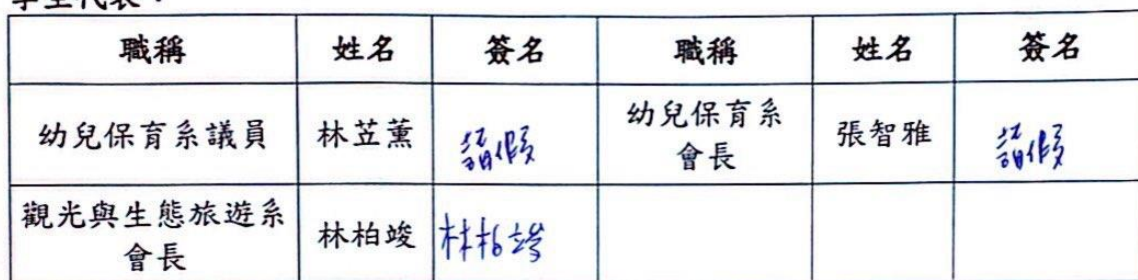 學生代表：
職稱 姓名 簽名 職稱 姓名 簽名
幼兒保育系議員 林苙薰 請假 幼兒保育系會長 張智雅 請假
觀光與生態旅遊系會長 林柏竣 林柏竣